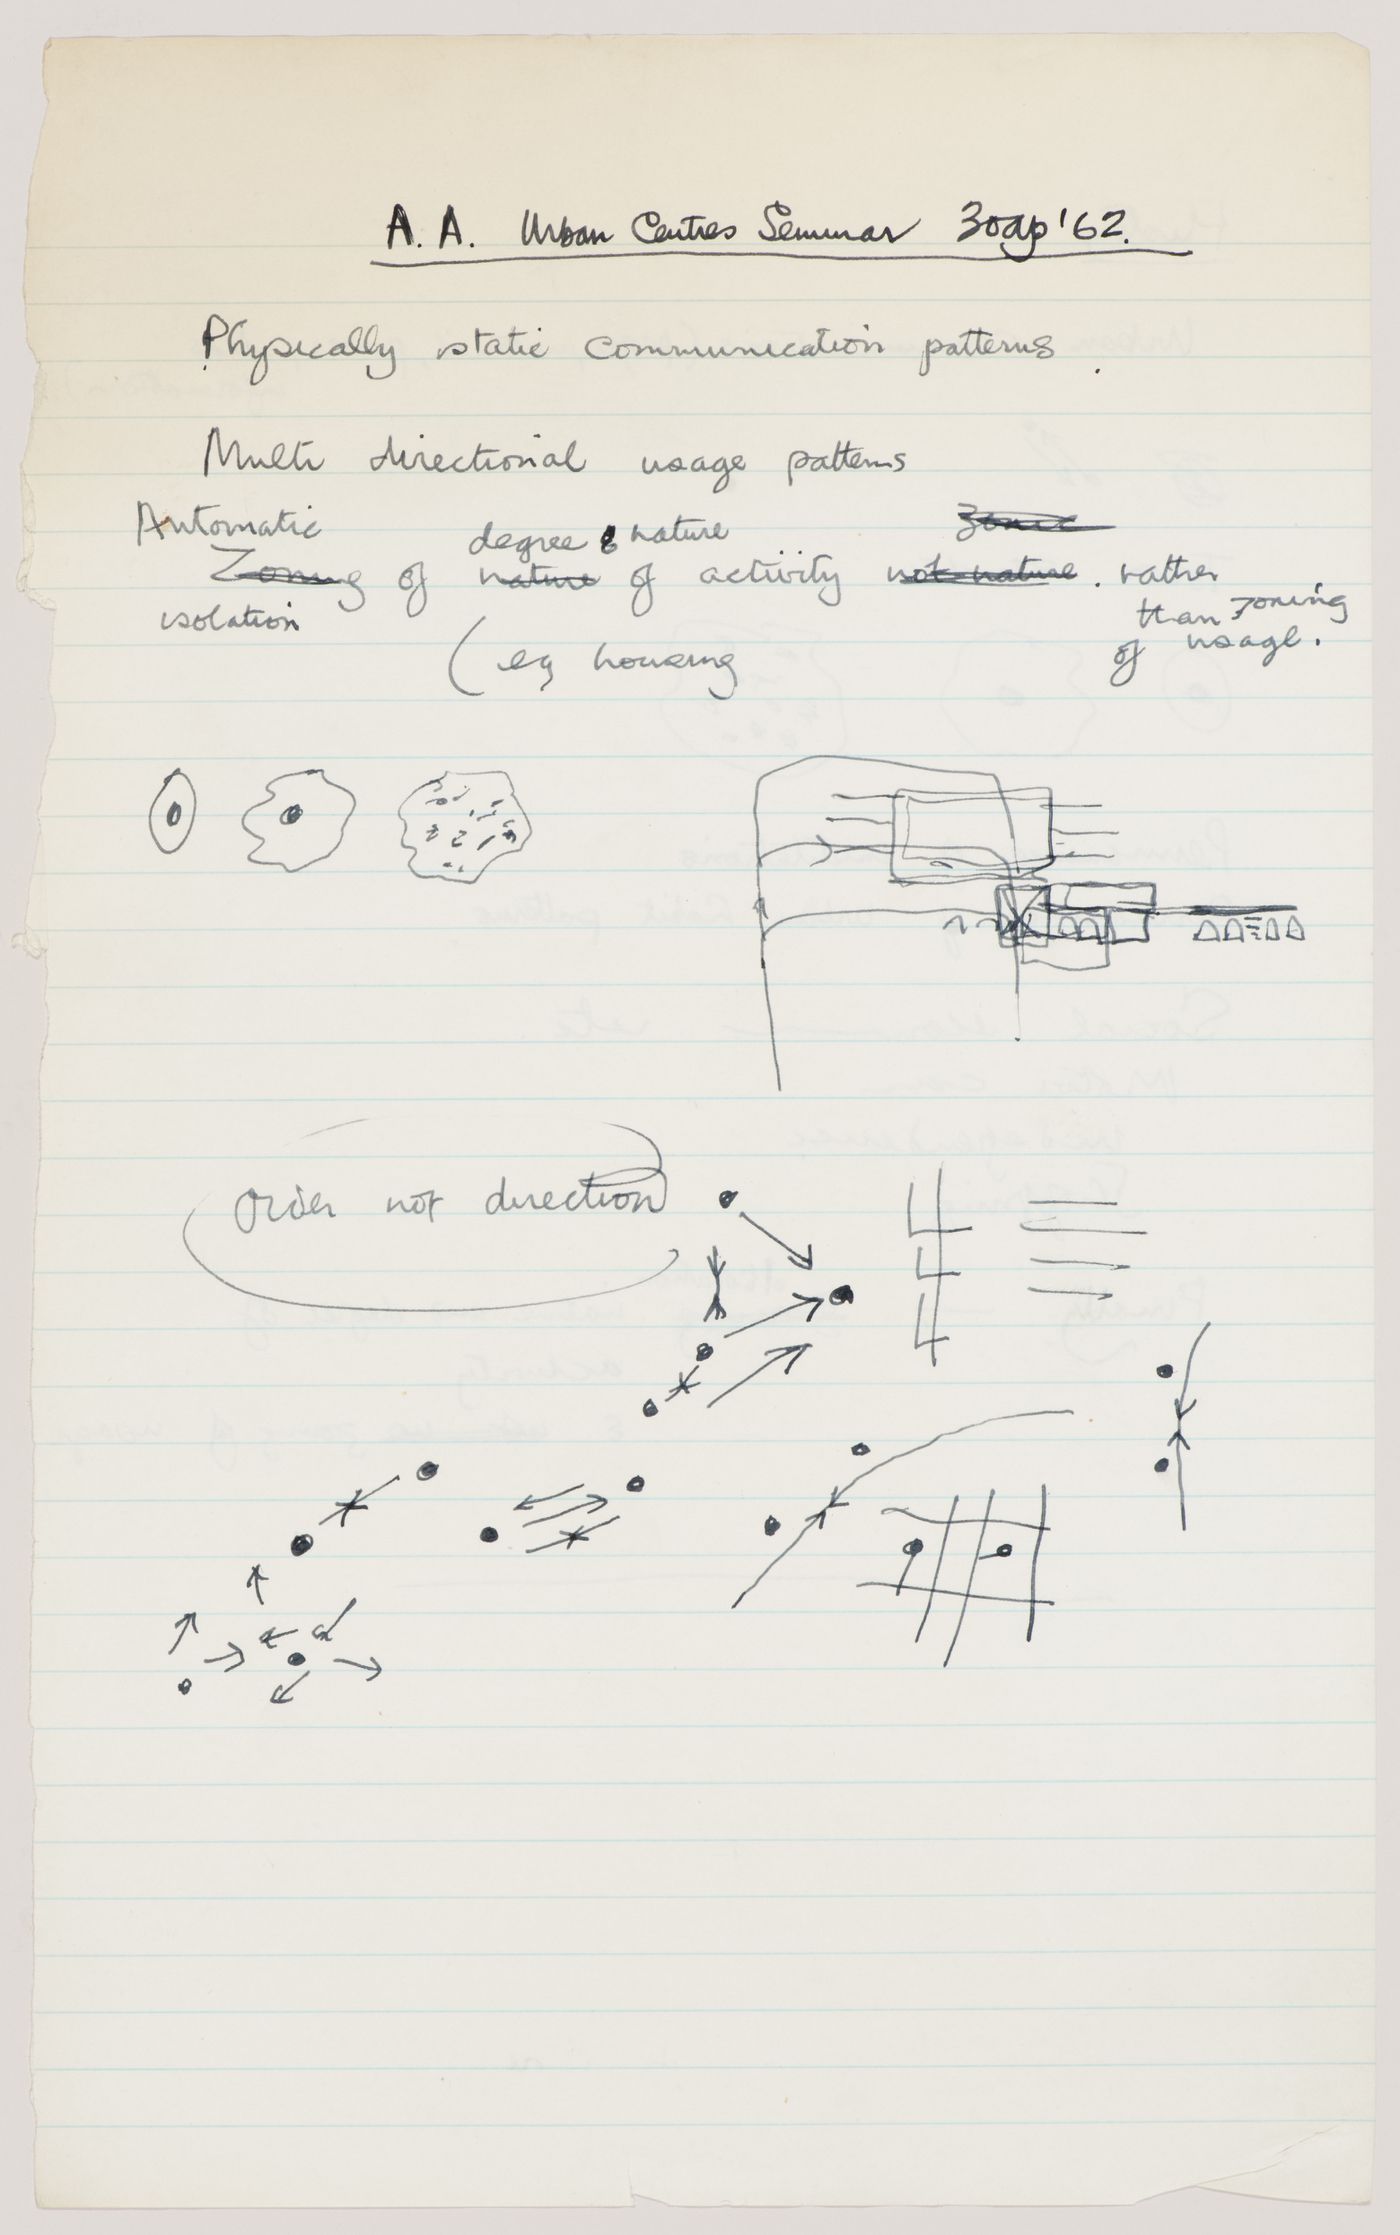 A. A. Urban Centres Seminar 30 ap '62.
Physically static communication patterns.
Multi directional usage patterns
Automatic degree & nature
Zoning of nature of activity not nature. rather
isolation than zoning
(eg housing of usage.
Order not direction